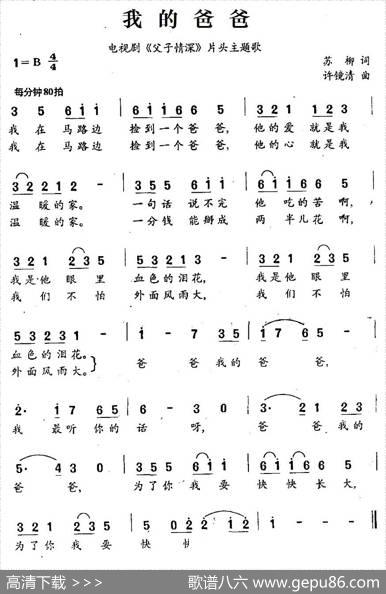 我的爸爸
电视剧《父子情深》片头主题歌
1=B 4/4
苏柳 词
许镜清 曲
每分钟80拍
3 5 6 1 1 | 6 1 1 6 6 5 | 3 2 1 1 2 3
我 在 马路边 捡到一个爸爸, 他的爱 就是我
我 在 马路边 捡到一个爸爸, 他的心 就是我
3 2 2 1 2 - | 3 5 5 6 1 1 | 6 1 6 6 5
温 暖的家。 一句话 说不定 他 吃的苦啊,
温 暖的家。 一分钱 能掰成 两 半儿花啊,
3 2 1 2 3 5 | 5 3 2 3 5 | 3 2 1 2 3 5
我是他 眼里 血色的泪花, 我是他 眼里
我们不怕 外面风雨大, 我们不怕
5 3 2 3 1 - | 1 - 7 7 6 5 3 5 | 1 7 6 5
血色的泪花。 爸 爸我的爸 爸,
外面风雨大。
2· 1 7 6 5 | 6 - 3 0 | 3· 2 1 2 3
我 最听你的话 呀, 爸 爸我的
5· 4 3 0 | 5 5 3 5 6 1 | 6 1 1 6 6 5
爸 爸, 为了你我要 快快长大,
3 2 1 2 3 5 | 5 0 2 2 1 2 | 1 - - 0
为了你我要 快
高清下载 >>>
歌谱八六 www.gepu86.com